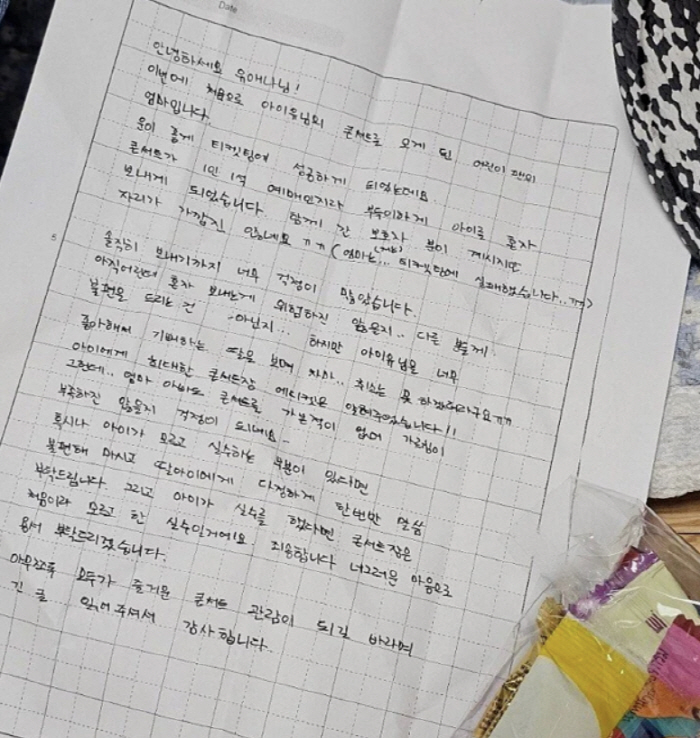 Date
안녕하세요 유애나님!
이번에 처음으로 아이유님의 콘서트를 오게 된 어린이 팬의
엄마입니다.
운이 좋게 티켓팅에 성공하게 되었는데요
콘서트가 1인 1석 예매인지라 부득이하게 아이를 혼자
보내게 되었습니다. 함께 간 보호자 분이 계시지만
자리가 가깝진 않네요 ㅠㅠ (엄마는... 티켓팅에 실패했습니다..ㅠㅠ)
솔직히 보내기까지 너무 걱정이 많았습니다.
아직어린데 혼자 보내는게 위험하진 않을지.. 다른 분들께
불편을 드리는 건 아닌지... 하지만 아이유님을 너무
좋아해서 기뻐하는 딸을 보며 차마.. 취소는 못 하겠더라구요ㅠㅠ
아이에게 최대한 콘서트장 에티켓은 알려주었습니다!!
그런데.. 엄마 아빠도 콘서트를 가본적이 없어 가르침이
부족하진 않을지 걱정이 되네요-
혹시나 아이가 모르고 실수하는 부분이 있다면
불편해 마시고 딸아이에게 다정하게 한번만 말씀
부탁드립니다 그리고 아이가 실수를 했다면 콘서트장은
처음이라 모르고 한 실수일거에요 죄송합니다 너그러운 마음으로
용서 부탁드리겠습니다.
아무쪼록 모두가 즐거운 콘서트 관람이 되길 바라며
긴 글 읽어주셔서 감사합니다.